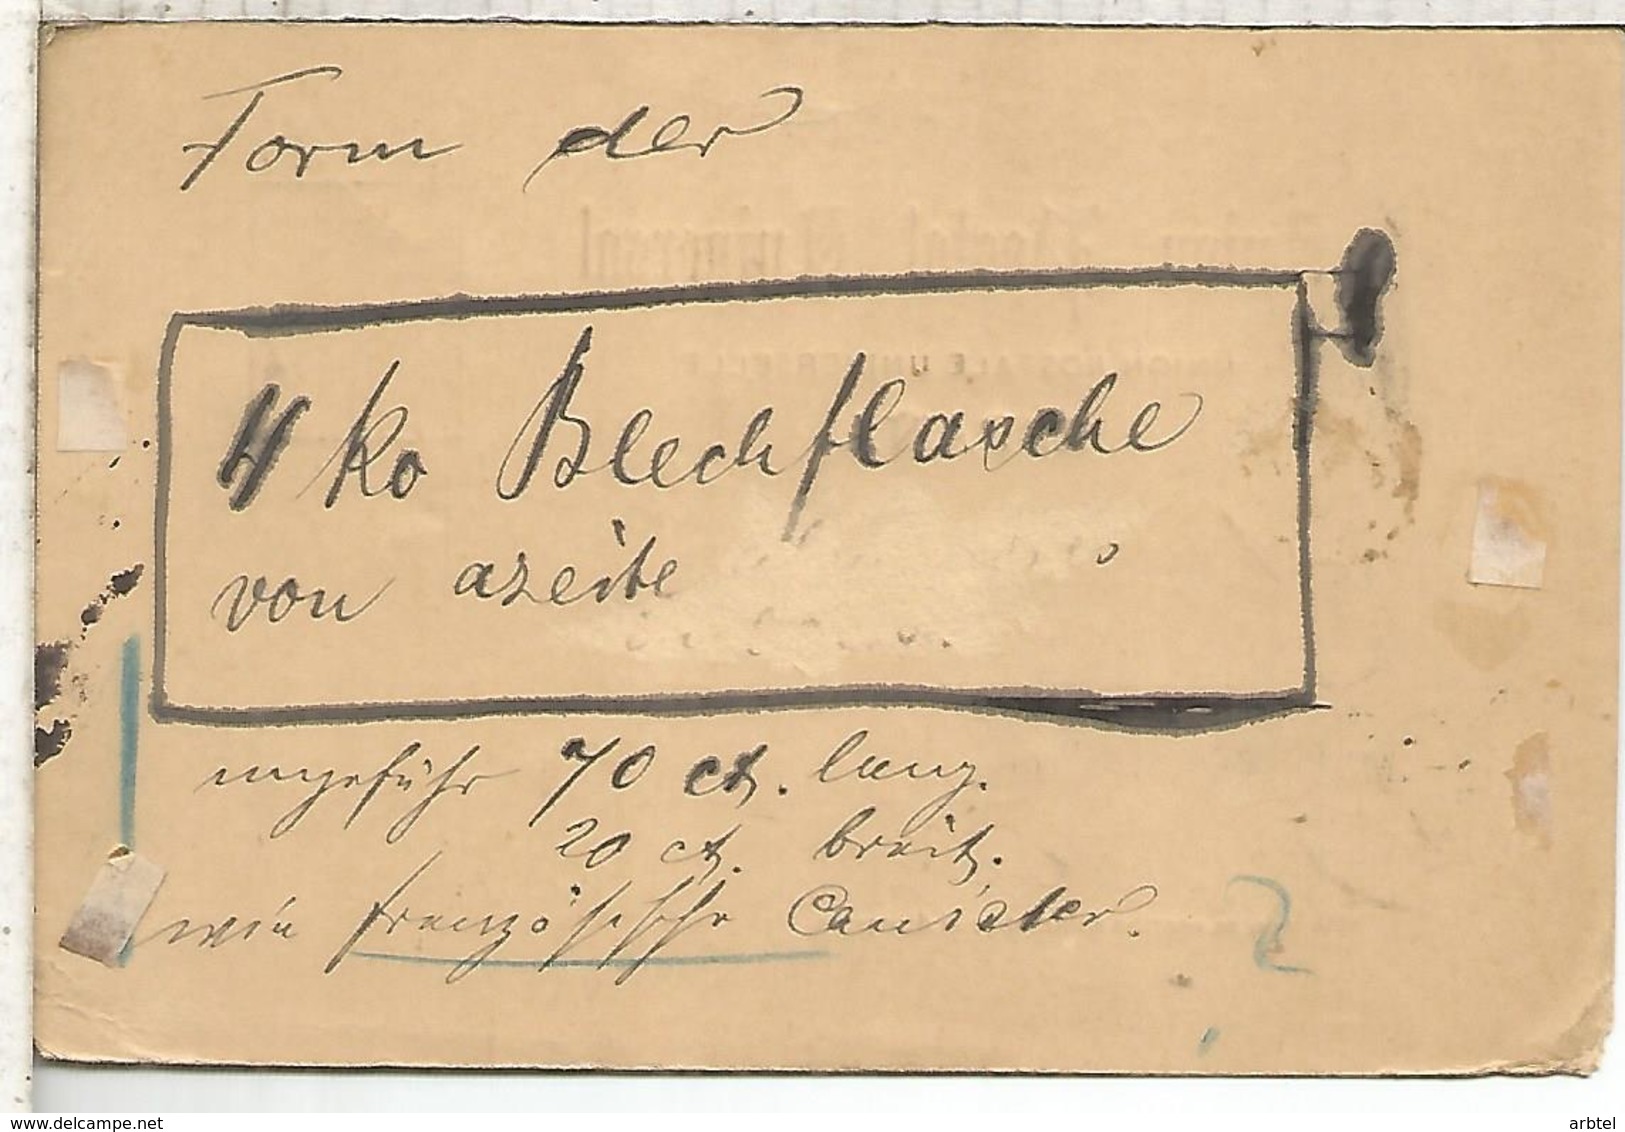 Form der
4 Ko Blechflasche
von azeite
ungefähr 70 ct. lang.
20 ct. breit.
wie französische Canister.
www.todocoleccion.net
arbtel